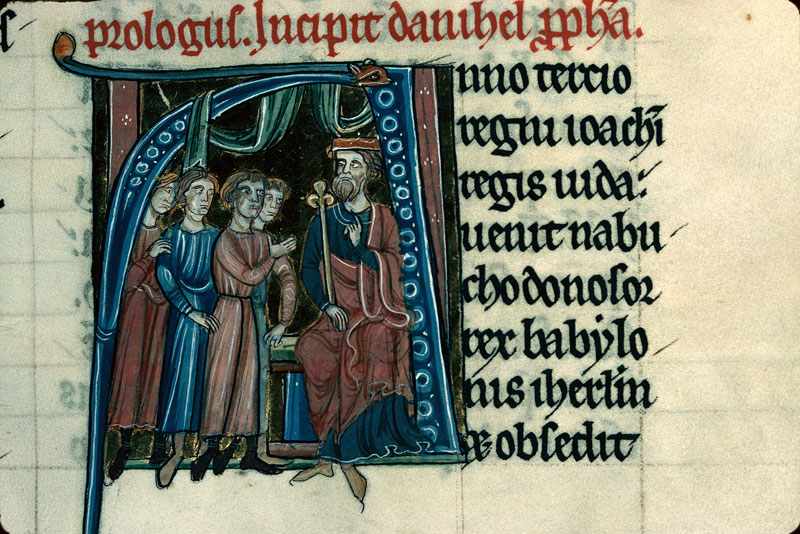 prologus. Incipit danihel ꝓph̄a.
Anno tercio
regni ioachī
regis iuda:
uenit nabu
chodonosor
rex babylo
nis iherl̄m
⁊ obsedit